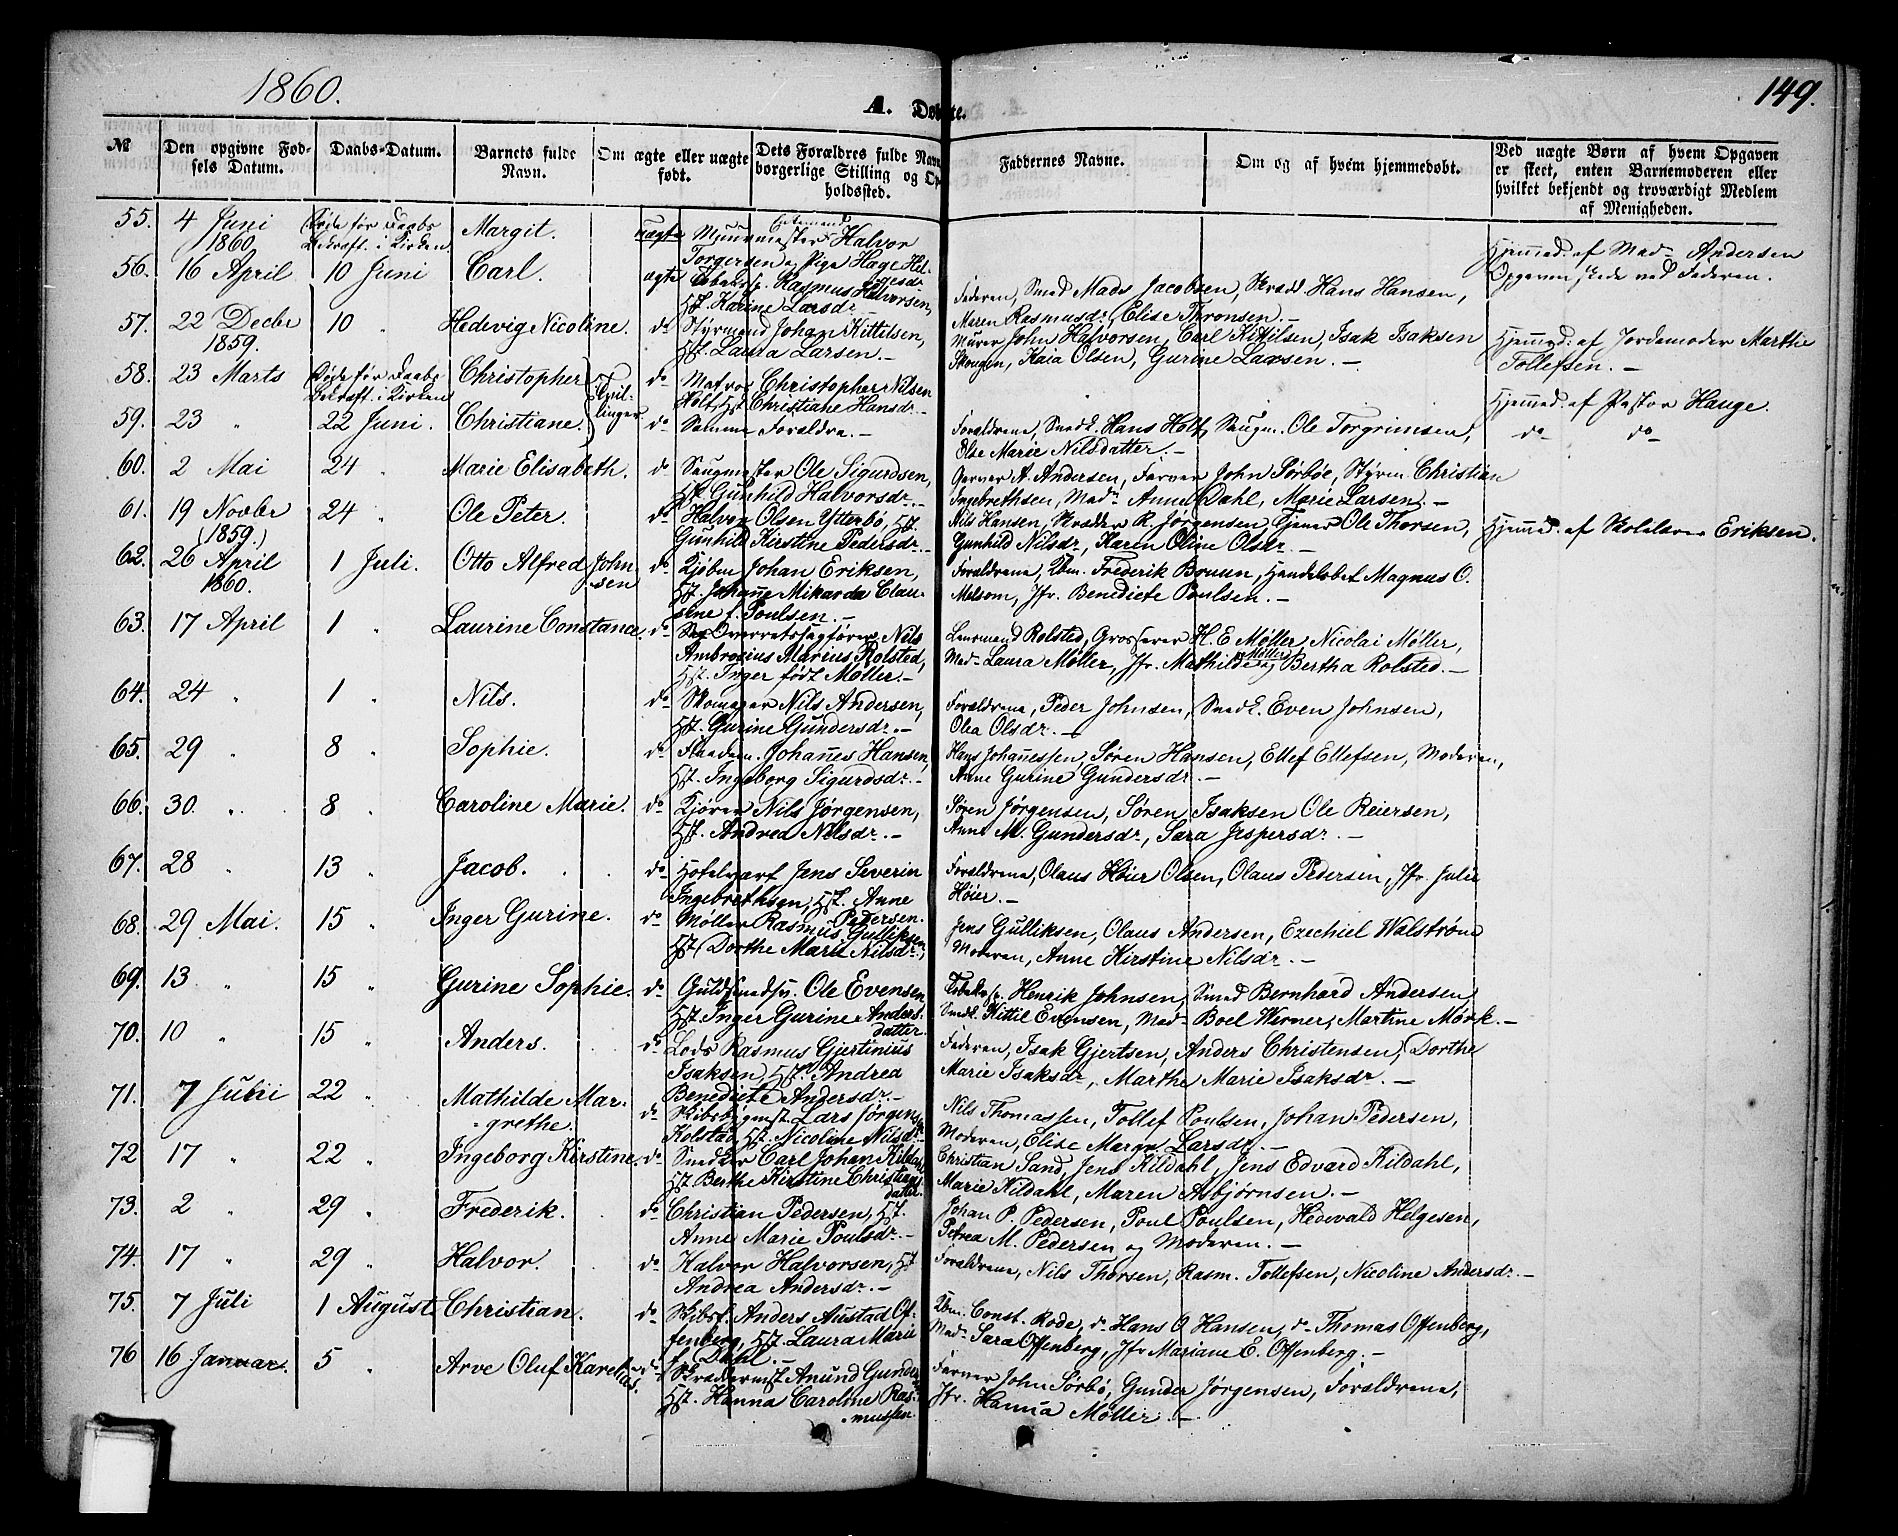 1860.
A. Døbte.
149.
No
Den opgivne Fød-
sels Datum.
Daabs-Datum.
Barnets fulde
Navn.
Om ægte eller uægte
født.
Dets Forældres fulde Navn
borgerlige Stilling og Op-
holdssted.
Faddernes Navne.
Om og af hvem hjemmedøbt.
Ved uægte Børn af hvem Opgaven
er skeet, enten Barnemoderen eller
hvilket bekjendt og troværdigt Medlem
af Menigheden.
55. 4 Juni Døde før Daabs Margit. uægte Muurmester Halvor
1860. Bekræft. i Kirken. Torgersen og Pige Hage Hel-
gesdr
Hjemmed. af Mad- Andersen
Opgaven skede ved Faderen.
56. 16 April 10 Juni Carl. ægte Tobaksf. Rasmus Halvorsen,
Hst. Karine Larsdr
Faderen, Smed Mads Jacobsen, Skræd. Hans Hansen,
Maren Rasmusdr, Elise Thronsen.-
57. 22 Decbr 10 " Hedevig Nicoline. do Styrmand Johan Kittilsen,
1859. Hst. Laura Larsen.-
Murer John Halvorsen, Carl Kittilsen, Isak Isaksen
Skougen, Kaia Olsen, Gurine Larsen.-
Hjemmed. af Jordemoder Marthe
Tollefsen.-
58. 23 Marts Døde før Daabs Christopher Tvil- do Matros Christopher Nilsen
Bekræft. i Kirken Holt, Hst Christiane Hansdr.-
Hjemmed. af Pastor Hauge.
59. 23 " 22 Juni. Christiane. linger do Samme Forældre.-
Forældrene, Smedk. Hans Holt, Saugm. Ole Torgrimsen,
Else Marie Nilsdatter.-
do do
60. 2 Mai 24 " Marie Elisabeth. do Saugmester Ole Sigurdsen,
Hst Gunhild Halvorsdr.-
Garver A. Andersen, Farver John Sørbøe, Styrm Christian
Ingebrethsen, Madm Anne Dahl, Marie Larsen.-
61. 19 Novbr 24 " Ole Peter. do Halvor Olsen Ytterbø, Hst.
(1859.) Gunhild Kirstine Pedersdr.-
Nils Hansen, Skrædder R. Jørgensen, Tjener Ole Thorsen,
Gunhild Nilsdr, Karen Oline Olsdr.-
Hjemmed. af Skolelærer Eriksen.
62. 26 April 1 Juli. Otto Alfred John- do Kjøbm Johan Eriksen,
1860. sen Hst. Johanne Mikarda Clau-
sine f. Poulsen.-
Forældrene, Kbm. Frederik Bruun, Handelsbet Magnus O.
Melsom, Jfr. Benedicte Poulsen.-
63. 17 April 1 " Laurine Constance. do Overretssagfører Nils
Ambrosius Marius Rolsted,
Hst. Inger født Møller.-
Lensmand Rolsted, Grosserer H. E Møller, Nicolai Møller,
Mad- Laura Møller, Jfr. Mathilde Møller og Bertha Rolsted.-
64. 24 " 1 " Nils. do Skomager Nils Andersen,
Hst. Gurine Gundersdr.-
Forældrene, Peder Johnsen, Smedk. Even Johnsen,
Olea Olsdr.-
65. 29 " 8 " Sophie. do Johannes Hansen,
Hst. Ingeborg Sigurdsdr.-
Hans Johannessen, Søren Hansen, Ellef Ellefsen, Moderen,
Anne Gurine Gundersdr.-
66. 30. " 8 " Caroline Marie. do Kjører Nils Jørgensen,
Hst. Andrea Nilsdr.-
Søren Jørgensen, Søren Isaksen Ole Reiersen,
Anne M. Gundersdr, Sara Jespersdr.-
67. 28 " 13 " Jacob. do Hotelvært Jens Severin
Ingebrethsen, Hst. Anne
Pedersen.
Forældrene, Olaus Høier Olsen, Olaus Pedersen, Jfr. Julie
Høier.-
68. 29 Mai. 15 " Inger Gurine. do Møller Rasmus Gulliksen
Hst. Dorthe Marie Nilsdr.
Jens Gulliksen, Olaus Andersen, Ezechiel Walstrøm
Moderen, Anne Kirstine Nilsdr.-
69. 13 " 15 " Gurine Sophie. do Guldsmedsv. Ole Evensen
Hst. Inger Gurine Anders-
datter.
Tobaksf. Henrik Johnsen, Smed Bernhard Andersen,
Smedk. Kittil Evensen, Mad- Boel Werner, Martine Mørk.-
70. 10 " 15 " Anders. do Lods Rasmus Gjertinius
Isaksen, Hst. Andrea
Benedicte Andersdr.-
Faderen, Isak Gjertsen, Anders Christensen, Dorthe
Marie Isaksdr., Marthe Marie Isaksdr.-
71. 7 Juni 22 " Mathilde Mar- do Skibsbygmst. Lars Jørgens
grethe. Kolstad, Hst. Nicoline Nilsdr.
Nils Thomassen, Tollef Poulsen, Johan Pedersen,
Moderen, Elise Margr. Larsdr.-
72 17 " 22 " Ingeborg Kirstine. do Snedker Carl Johan Kildahl
Hst Berthe Kirstine Christians
datter.
Christian Sand, Jens Kildahl, Jens Edvard Kildahl,
Marie Kildahl, Maren Asbjørnsen.-
73. 2 " 29 " Frederik. do Christian Pedersen, Hst.
Anne Marie Poulsdr.-
Johan P. Pedersen, Poul Poulsen, Hedevald Helgesen,
Petrea M. Pedersen og Moderen.-
74. 17 " 29 " Halvor. do Halvor Halvorsen, Hst
Andrea Andersdr.-
Forældrene, Nils Thorsen, Rasm. Tollefsen, Nicoline Andersdr.-
75. 7 Juli 1 August Christian. do Skibsf. Anders Austad Of-
fenberg, Hst. Laura Marie
f. Dahl.-
Kbm. Const. Rode, do Hans O Hansen, do Thomas Offenberg,
Mad- Sara Offenberg, Jfr Mariane E. Offenberg.-
76 16 Januar. 5 " Arve Oluf Kareli- do Skræddermst Anund Gunders
us. Hst. Hanna Caroline Ras-
mussen.
Farver John Sørbø, Gunder Jørgensen, Forældrene,
Jfr. Hanna Møller.-